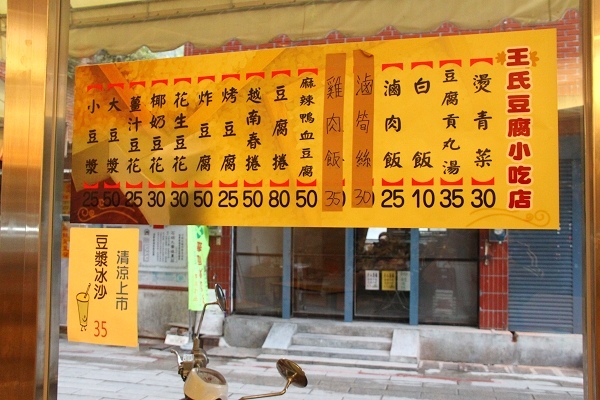 王氏豆腐小吃店
燙青菜 30
豆腐貢丸湯 35
白飯 10
滷肉飯 25
滷筍絲 30
雞肉飯 35
麻辣鴨血豆腐 50
豆腐捲 80
越南春捲 50
烤豆腐 25
炸豆腐 50
花生豆花 30
椰奶豆花 30
薑汁豆花 25
大豆漿 50
小豆漿 25
清涼上市
豆漿冰沙
35